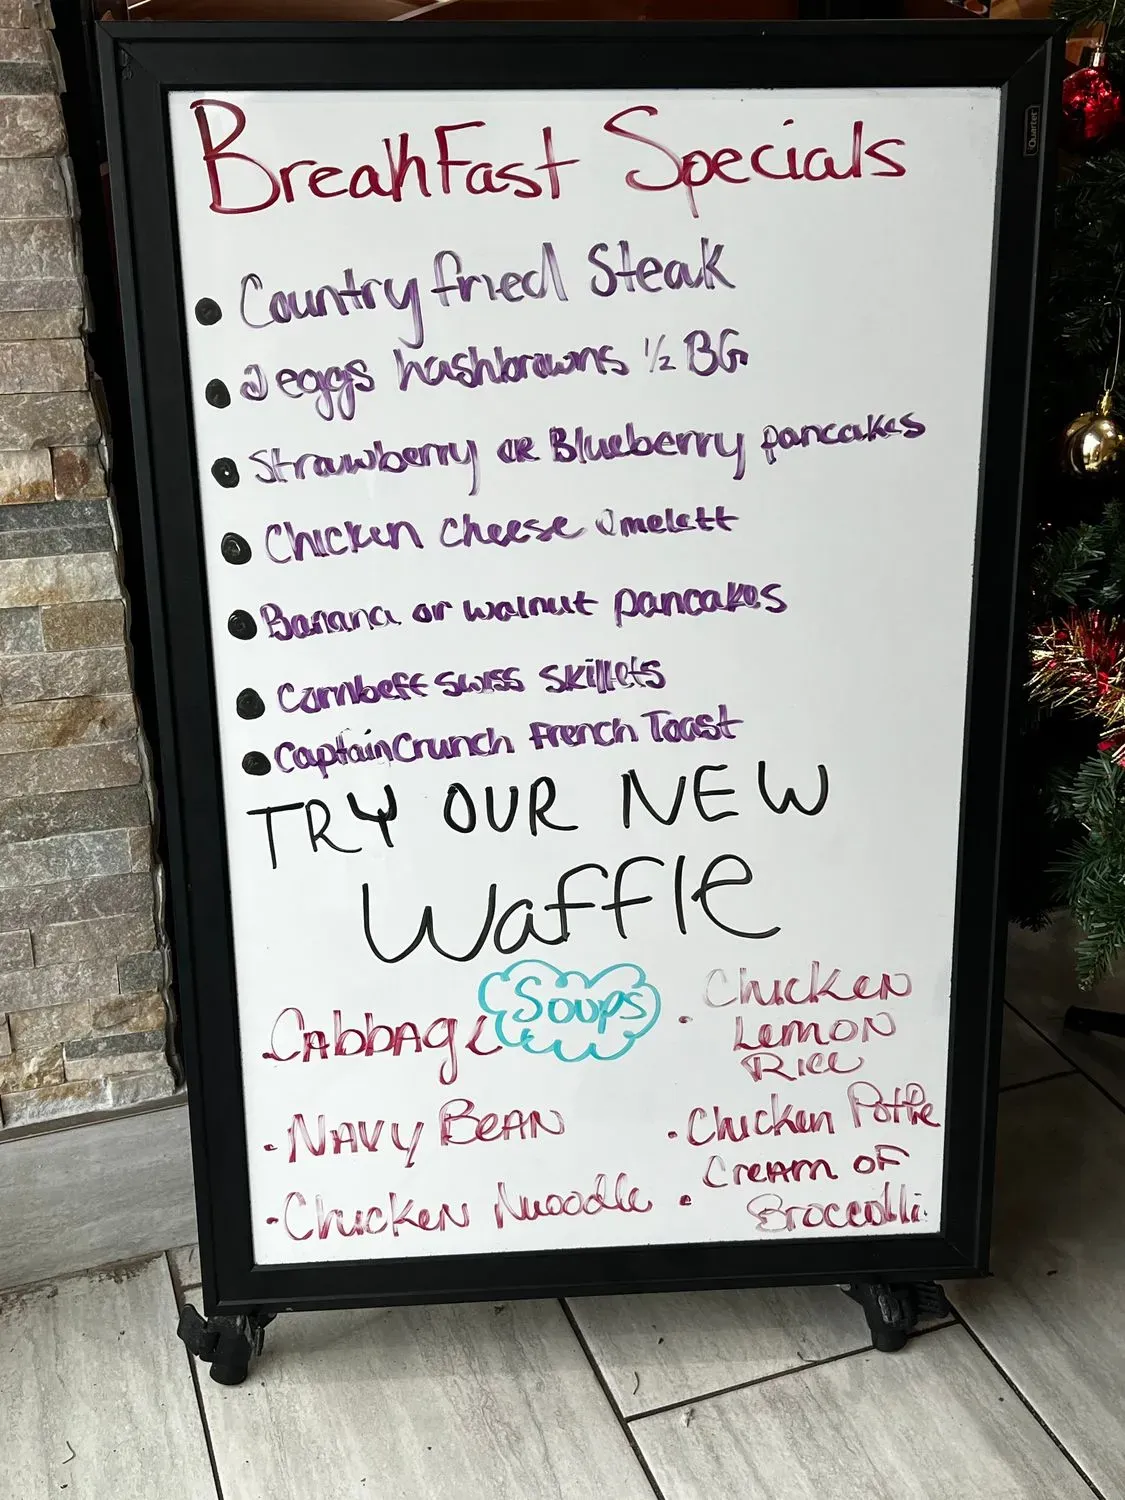 BreakFast Specials
• Country fried Steak
• 2 eggs hashbrowns 1/2 BG
• Strawberry OR Blueberry pancakes
• Chicken cheese Omelett
• Banana or walnut pancakes
• Cornbeff swiss skillets
• Captain Crunch French Toast
TRY OUR NEW
Waffle
Soups
• Cabbage
• Navy Bean
• Chicken Nuoodle
• Chicken
Lemon
Rice
• Chicken Potpie
• Cream of
Broccolli
Quartet